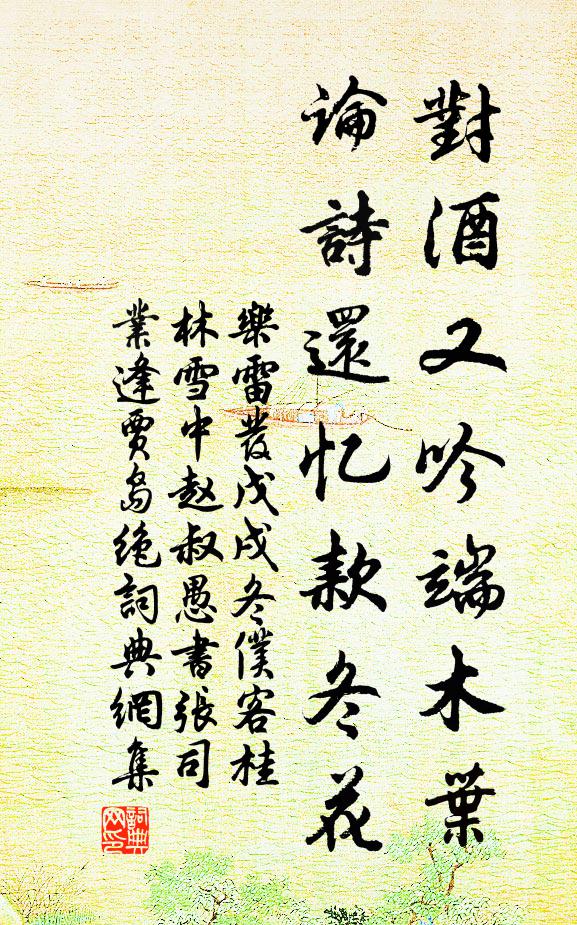 對酒又吟端木葉
論詩還忆款冬花
樂雷發戊戌冬僕客桂
林雪中赵叔愚書張司
業逢賈島绝詞典網集
詞典
网印